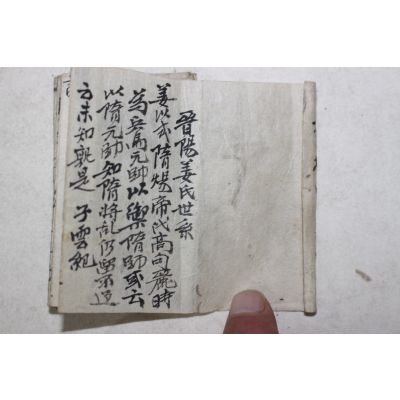 晉陽姜氏世系
姜以式隋煬帝代高句麗時
為兵馬元帥以禦隋師或云
以隋元帥知隋將亂仍留不還
云未知孰是 子雲紀